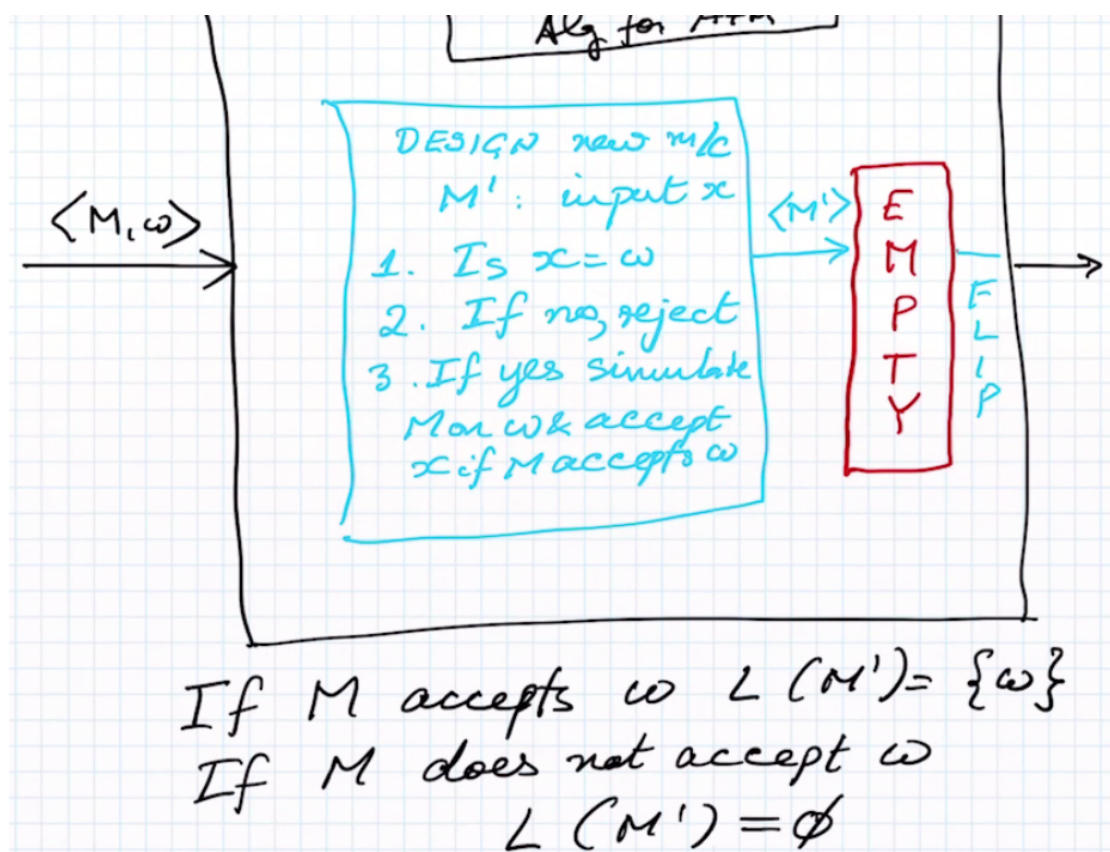 Alg for ATM
<M, ω>
DESIGN new m/c
M' : input x
1. Is x = ω
2. If no, reject
3. If yes simulate
M on ω & accept
x if M accepts ω
<M'>
EMPTY
FLIP
If M accepts ω L (M') = {ω}
If M does not accept ω
L (M') = ϕ